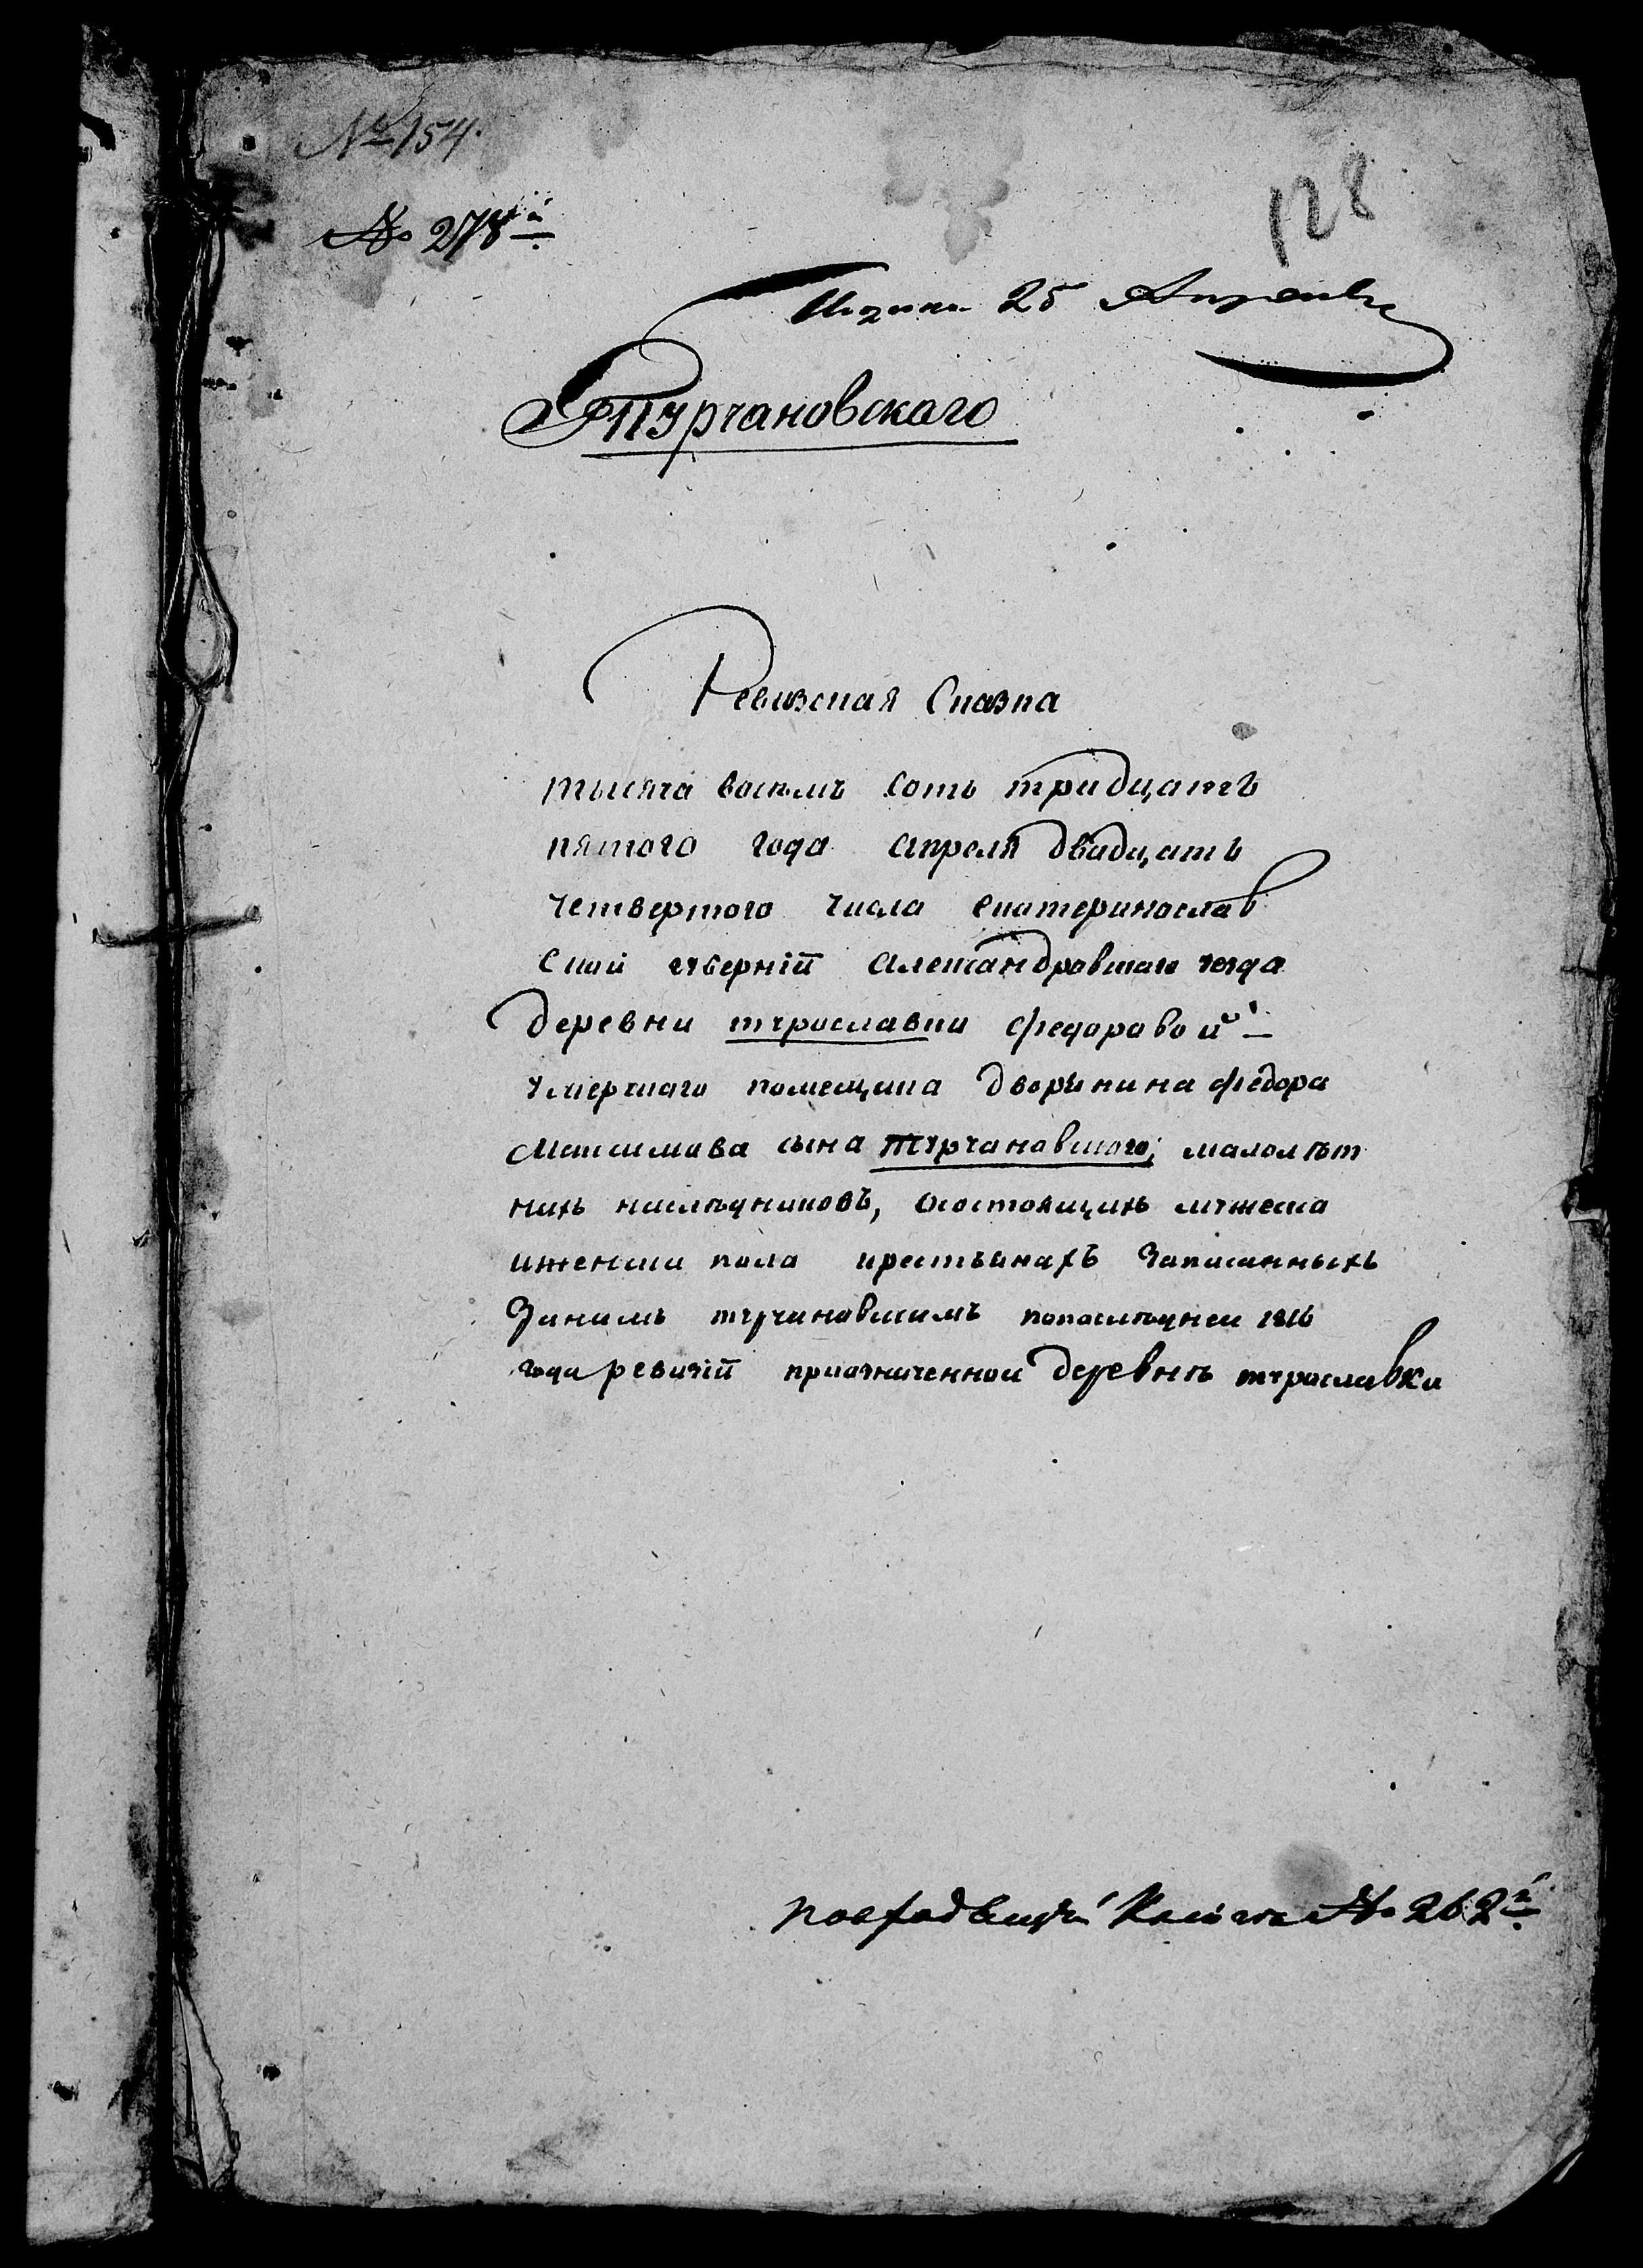 № 154.
№ 278й
128
25 Апреля
Турчановского
Ревизская Сказка
тысяча восемъ сотъ тридцатъ
пятого года апреля двадцать
четвертого числа екатеринослав
ской губерніи александровского уезда
деревни турославки федоровой
умершаго помещика дворянина федора
Максимова сына турчановского, малолѣт
нихъ наслѣдниковъ, осостоящихъ мужеска
иженска пола крестьянахъ записанныхъ
Занимъ турчановскимъ попослѣдней 1816
года ревизіи приозначенной деревнѣ турославки
№ 262й